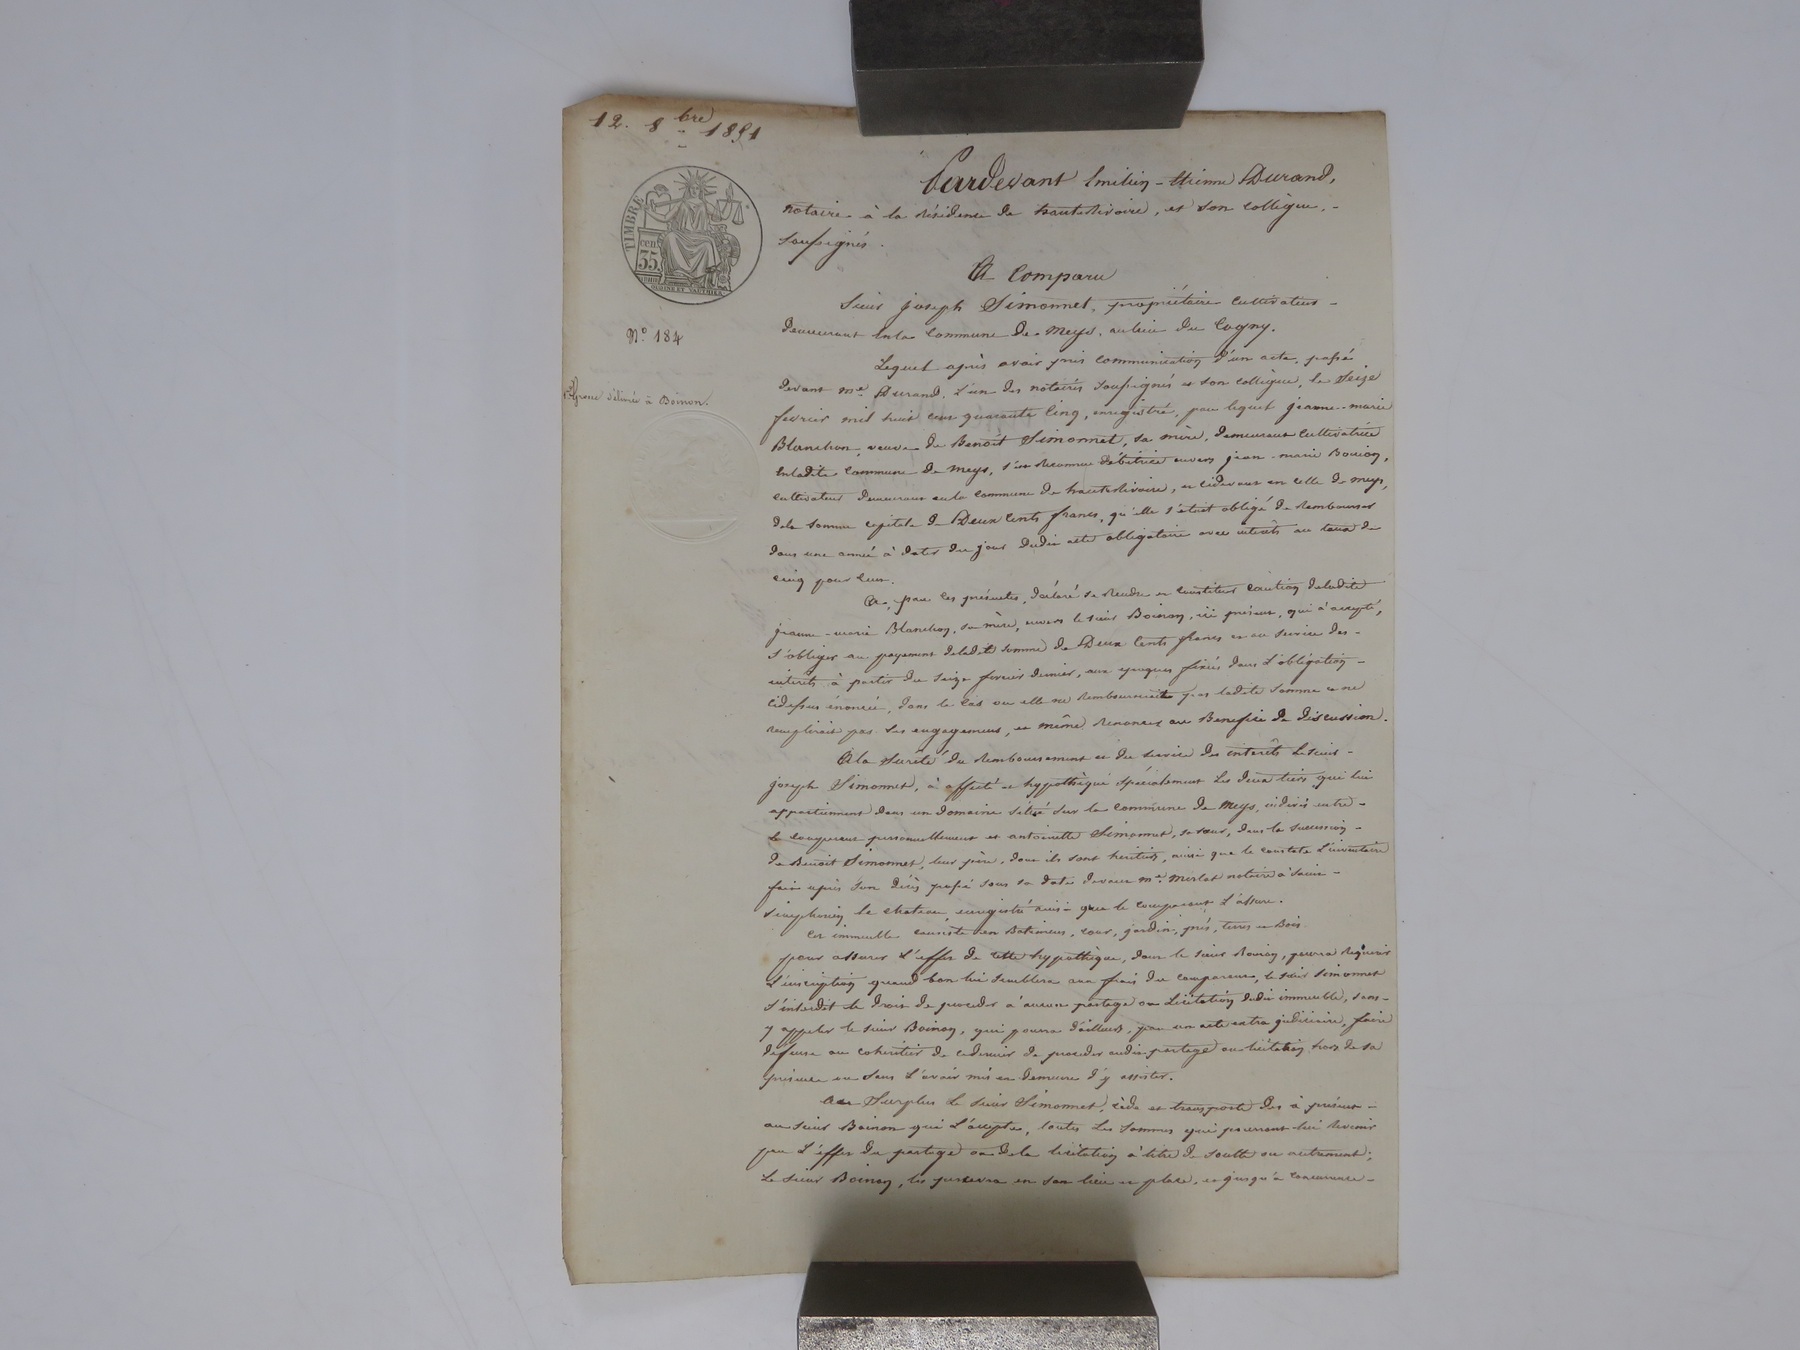 12. 8bre 1851
TIMBRE
cen
35
No. 184
Grosse délivrée à Boinon.
Pardevant Emilien-Etienne Durand,
notaire à la résidence de hauterivoire, et son collègue,
soussignés.
A Comparu
Sieur joseph Simonnet, propriétaire cultivateur
demeurant en la commune de Meys, au lieu du Cogny.
Lequel après avoir pris communication d'un acte, passé
devant me. Durand, l'un des notaires soussignés et son collègue, le Seize
fevrier mil huit cent quarante cinq, enregistré, par lequel jeanne-marie
Blanchon, veuve de Benoît Simonnet, sa mère, demeurant cultivatrice
en ladite commune de Meys, s'est reconnue débitrice envers jean-marie Boinon,
cultivateur demeurant en la commune de hauterivoire, et cidevant en celle de meys,
dela somme capitale de Deux Cents francs, qu'elle s'était obligé de rembourser
dans une année à dater du jour dudit acte obligatoire avec intérêts au taux de
cinq pour cent.
A, par ces présentes, déclaré se rendre et constituer caution deladite
jeanne-marie Blanchon, sa mère, envers le sieur Boinon, ici présent, qui a accepté,
s'obliger au payement deladite somme de Deux Cents francs et au service des
intérêts à partir du seize fevrier dernier, aux époques fixées dans l'obligation
cidessus énoncée, dans le cas ou elle ne rembourserait pas ladite somme et ne
remplirait pas ses engagemens, et même renoncer au Benefice de discussion.
A la sureté du remboursement et du service des intérêts le sieur
joseph Simonnet, à affecté et hypothéqué spécialement les deux tiers qui lui
appartiennent dans un domaine situé sur la commune de Meys, indivis entre
le comparant personnellement et antoinette Simonnet, sa sœur, dans la succession
de Benoît Simonnet, leur père, dont ils sont héritiers, ainsi que le constate l'inventaire
fait après son décès passé sous sa date devant me. Merlat notaire à Saint
simphorien le chateau, enregistré ainsi que le comparant l'assure.
Cet immeuble consiste en Batimens, cour, jardin, prés, terres et Bois.
pour assurer l'effet de cette hypothèque, dont le sieur Boinon, pourra requerir
l'inscription quand bon lui semblera aux frais du comparant, le sieur Simonnet
s'interdit le droit de proceder à aucun partage ou licitation dudit immeuble, sans
y appeler le sieur Boinon, qui pourra d'ailleurs, par un acte extra judiciaire, faire
défense aux cohéritier de cedernier de proceder audit partage ou licitation hors de sa
présence ou sans l'avoir mis en demeure d'y assister.
Au Surplus le sieur Simonnet, cède et transporte dès à présent
au sieur Boinon qui l'accepte, toutes les sommes qui pourront lui revenir
par l'effet du partage ou dela licitation à titre de soulte ou autrement;
le sieur Boinon, les percevra en son lieu et place, et jusqu'à concurrence